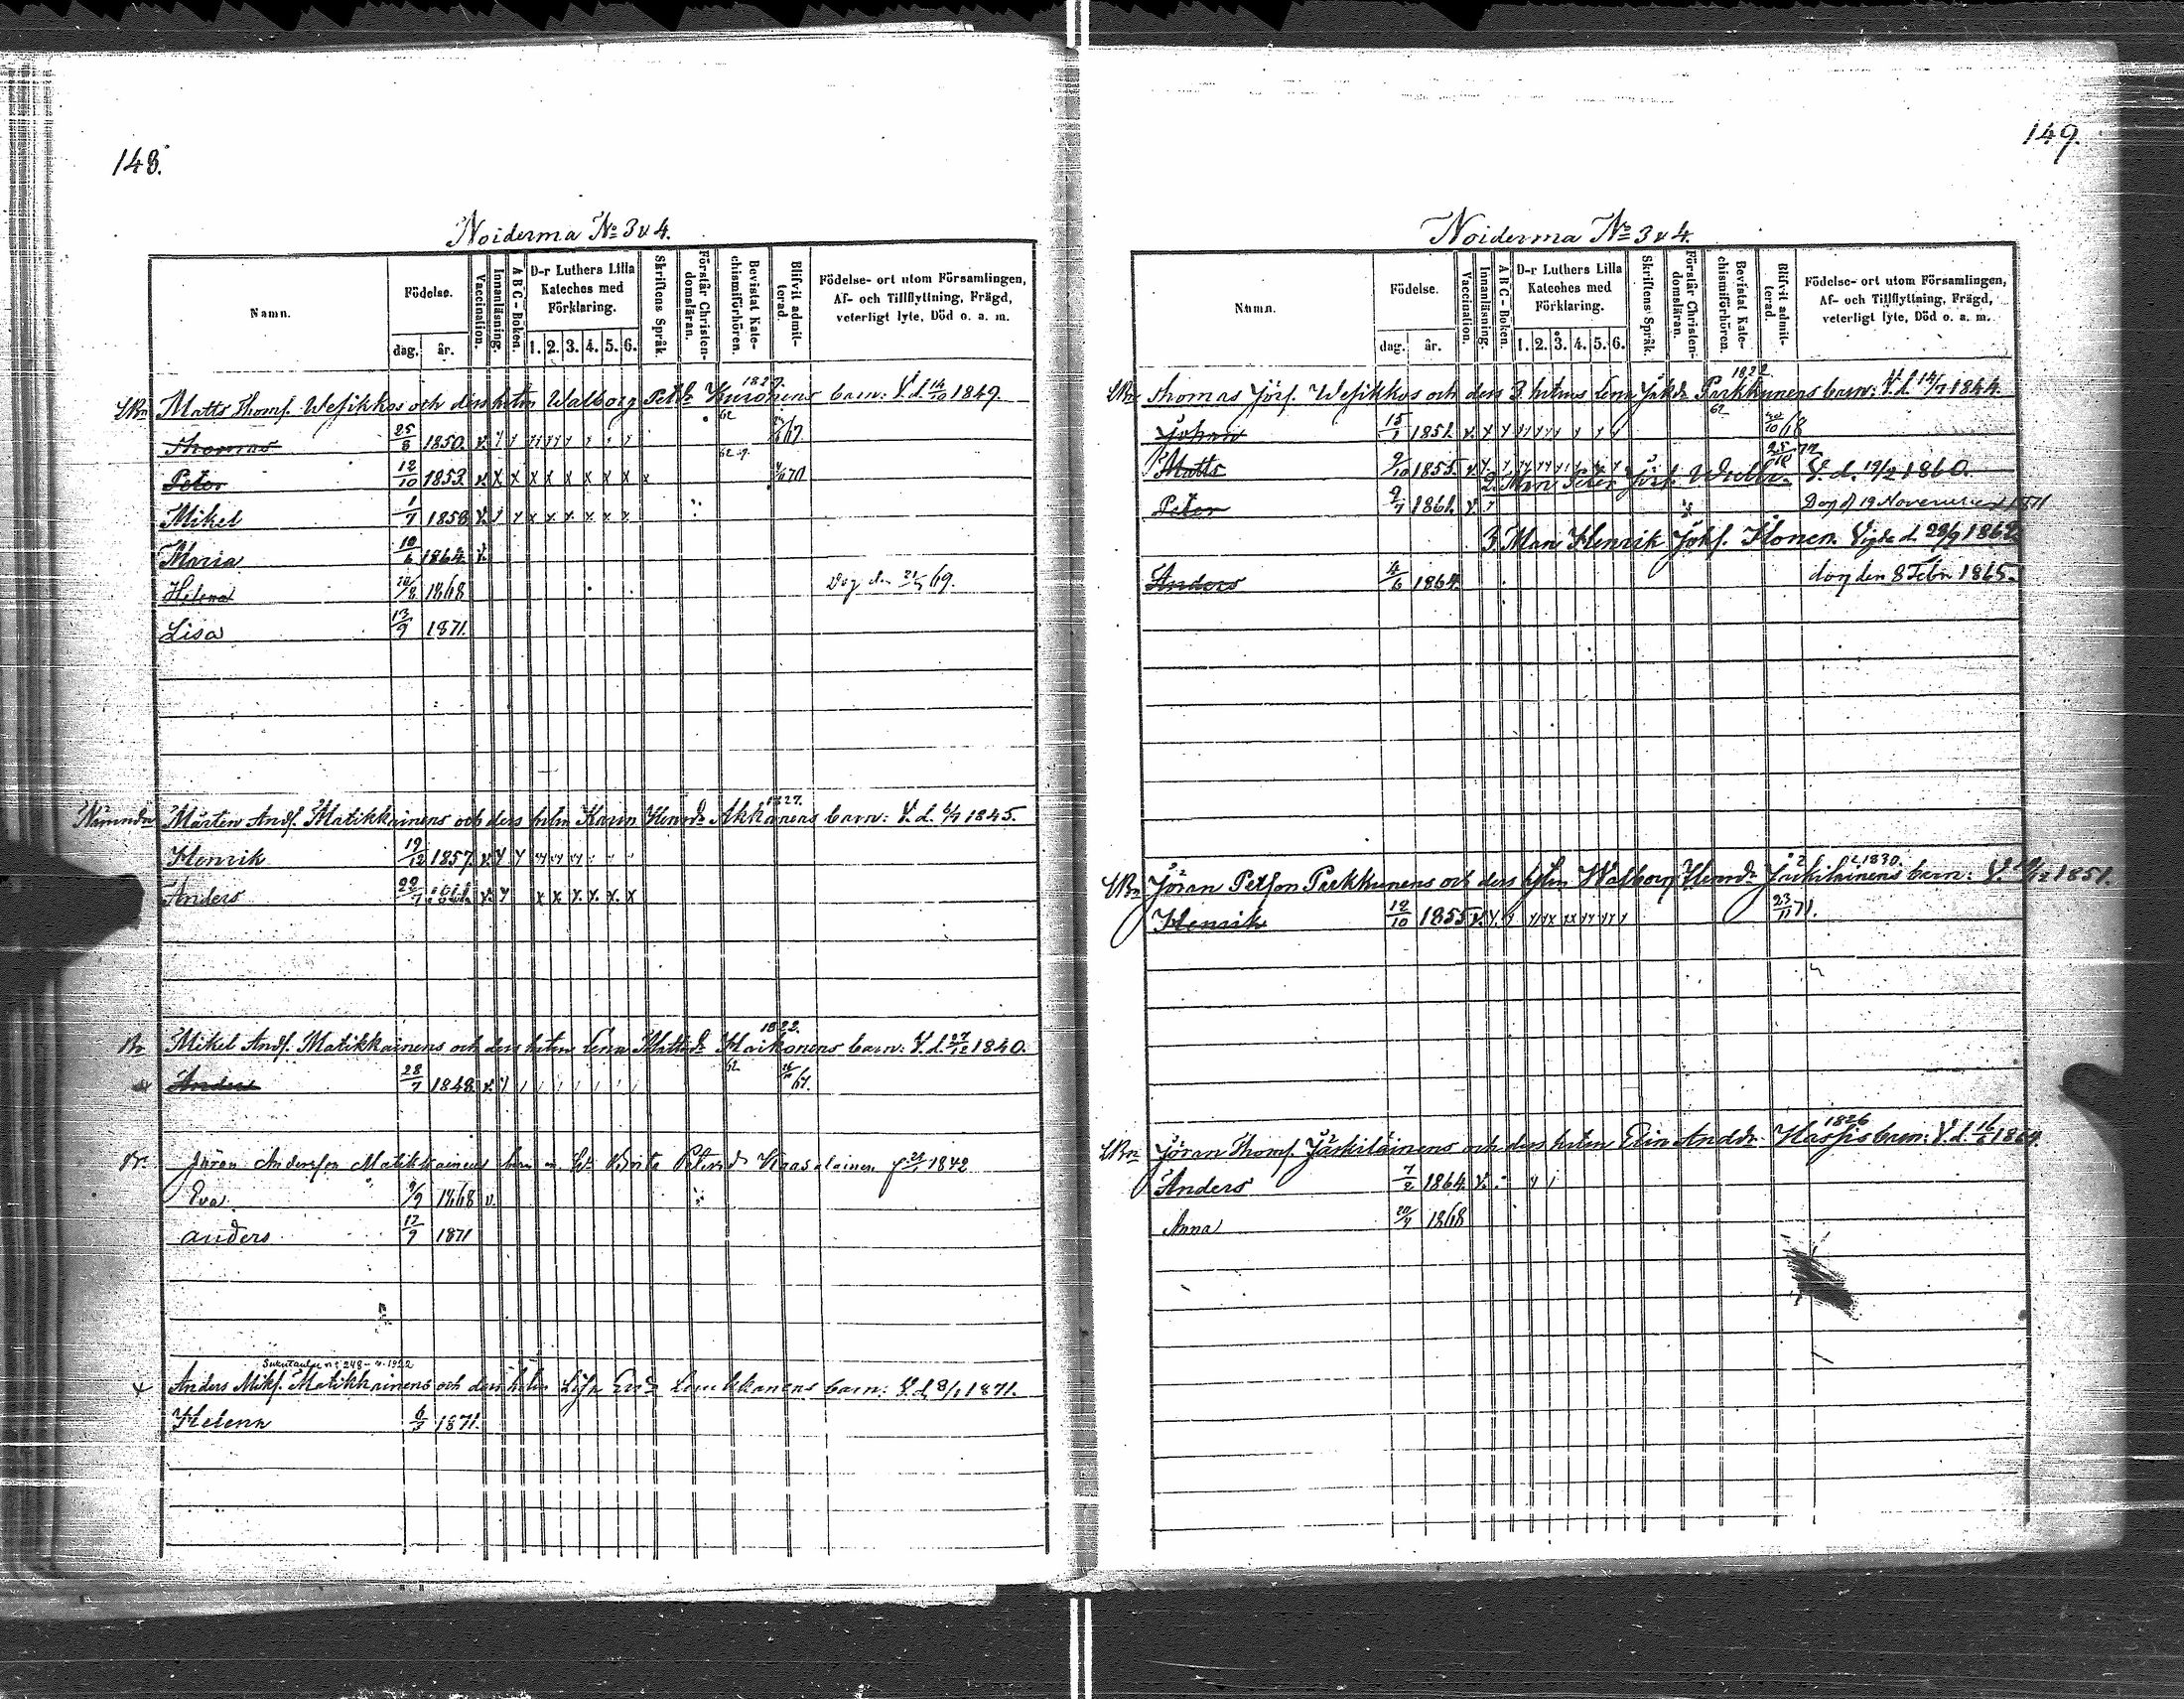 148.
Noiderma No 3 & 4.
Namn.
Födelse.
dag. år.
Vaccination.
Innanläsning.
ABC-Boken.
D-r Luthers Lilla
Kateches med
Förklaring.
1. 2. 3. 4. 5. 6.
Skriftens Språk.
Förstår Christen-
domsläran.
Bevistat Kate-
chismiförhören.
Blifvit admit-
terad.
Födelse- ort utom Församlingen,
Af- och Tillflyttning, Frägd,
veterligt lyte, Död o. a. m.
1829.
Matts Thomf. Wesikkos och dess hustru Walborg Petd. Kuronens barn: V.d. 14/10 1849.
62
Thomas 25/8 1850. 67
Peter 12/10 1853 70
Mikel 1/7 1858
Maria 10/6 1864.
Helena 20/8 1868 Dog den 21/5 69.
Lisa 13/9 1871.
1827.
Mårten Andf. Matikkainens och dess hustru Karin Henrd. Akkanens barn: V.d. 6/7 1845.
Henrik 19/12 1857
Anders 22/7 1861.
1822.
Br Mikel Andf. Matikkainens och dess hustru Lena Mattsd. Haikonens barn: V.d. 27/12 1840.
62
Anders 28/7 1848. 67.
Br. Jöran Andersson Matikkainens barn m. h. Brita Petersd. f 1842
Eva 9/9 1868 v.
Anders 17/9 1871
Sukutaulu n:o 248 1922
Anders Mikf. Matikkainens och dess hustru Lisa Leukkanens barn: V.d. 8/1 1871.
Helena 6/3 1871.
149.
Noiderma No 3 & 4.
Namn.
Födelse.
dag. år.
Vaccination.
Innanläsning.
ABC-Boken.
D-r Luthers Lilla
Kateches med
Förklaring.
1. 2. 3. 4. 5. 6.
Skriftens Språk.
Förstår Christen-
domsläran.
Bevistat Kate-
chismiförhören.
Blifvit admit-
terad.
Födelse- ort utom Församlingen,
Af- och Tillflyttning, Frägd,
veterligt lyte, Död o. a. m.
1822
Thomas Jörf. Wesikkos och dess 3. hustrus Lena Jakd. Parkkunens barn: V.d. 14/7 1844.
62
Johan 15/1 1851. 20/10 68
Matts 9/10 1855. 25/10 72
2. Man Peter Jörf. V.d. 19/2 1860.
Peter 9/7 1861. Dog d 19 November 1871
3. Man Henrik Johf. Ilonen. Vigde d. 28/9 1862
Anders 4/6 1864. dog den 8 Febr 1865.
1830.
Jöran Petsson Parkkunens och dess hustru Walborg Henrd. Jäskiläinens barn: V. 1851.
Henrik 12/10 1855 23/11 71.
1826
Jöran Thomf. Jäskiläinens och dess hustru Elin Andd. barn: V.d. 16/5 1864.
Anders 7/2 1864.
Anna 20/7 1868